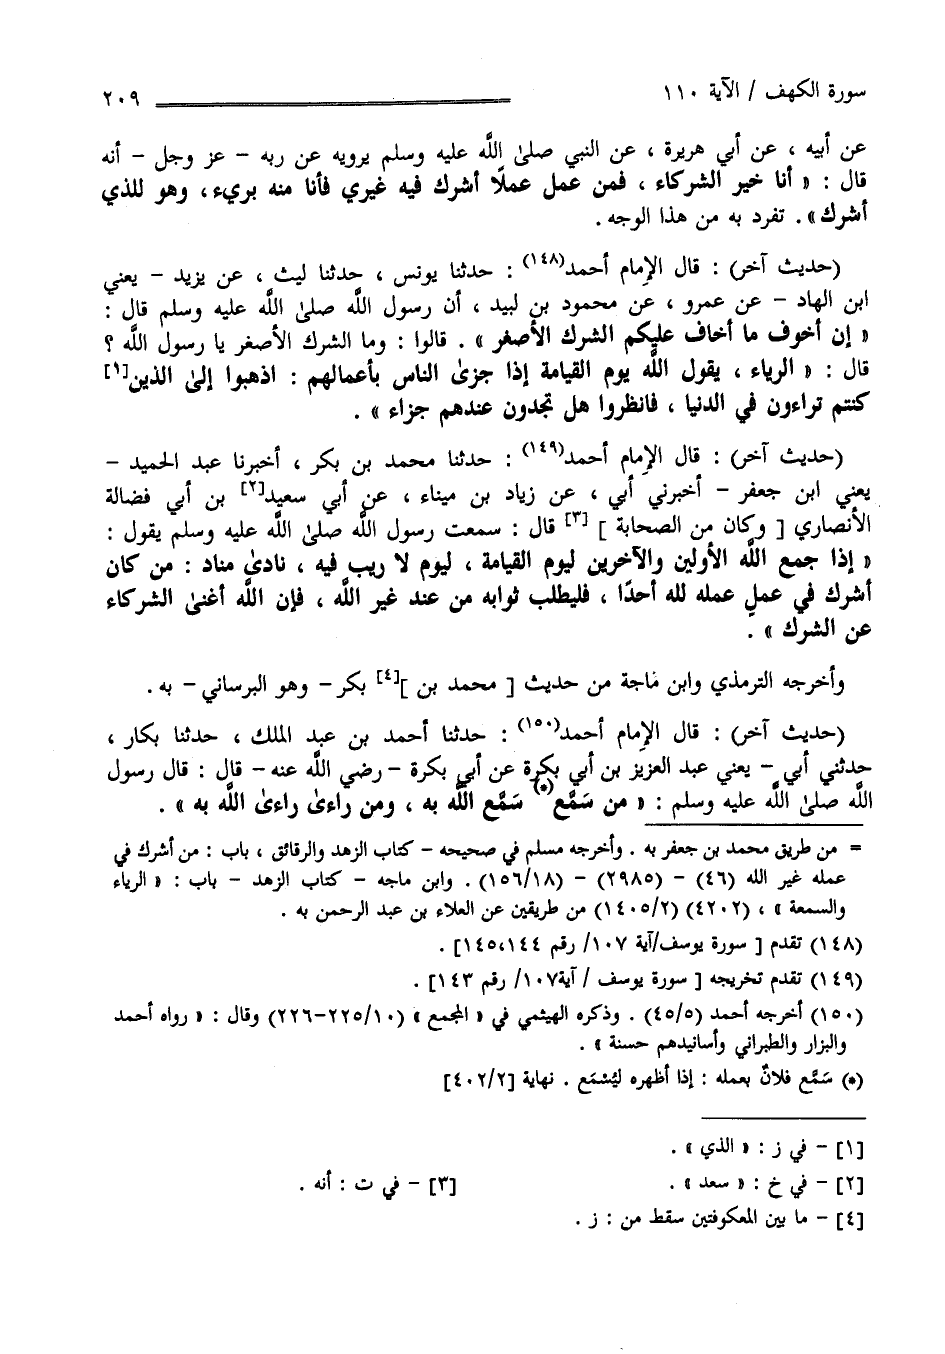 سورة الكهف / الآية ١١٠
٢٠٩
عن أبيه ، عن أبي هريرة ، عن النبي صلىٰ اللَّه عليه وسلم يرويه عن ربه – عز وجل – أنه
قال : « أنا خير الشركاء ، فمن عمل عملًا أشرك فيه غيري فأنا منه بريء، وهو للذي
أشرك». تفرد به من هذا الوجه .
(حديث آخر) : قال الإمام أحمد(١٤٨) : حدثنا يونس ، حدثنا ليث ، عن يزيد – يعني
ابن الهاد – عن عمرو ، عن محمود بن لبيد ، أن رسول اللَّه صلىٰ اللَّه عليه وسلم قال :
« إن أخوف ما أخاف عليكم الشرك الأصغر » . قالوا : وما الشرك الأصغر يا رسول اللَّه ؟
قال : « الرياء ، يقول اللَّه يوم القيامة إذا جزىٰ الناس بأعمالهم : اذهبوا إلىٰ الذين[١]
كنتم تراءون في الدنيا ، فانظروا هل تجدون عندهم جزاء » .
(حديث آخر) : قال الإمام أحمد(١٤٩) : حدثنا محمد بن بكر ، أخبرنا عبد الحميد –
يعني ابن جعفر – أخبرني أبي ، عن زياد بن ميناء ، عن أبي سعيد[٢] بن أبي فضالة
الأنصاري [ وكان من الصحابة ] [٣] قال : سمعت رسول اللَّه صلىٰ اللَّه عليه وسلم يقول :
« إذا جمع اللَّه الأولين والآخرين ليوم القيامة ، ليوم لا ريب فيه ، نادىٰ مناد : من كان
أشرك في عملٍ عمله لله أحدًا ، فليطلب ثوابه من عند غير اللَّه ، فإن اللَّه أغنىٰ الشركاء
عن الشرك » .
وأخرجه الترمذي وابن ماجة من حديث [ محمد بن ][٤] بكر – وهو البرساني – به .
(حديث آخر) : قال الإمام أحمد(١٥٠) : حدثنا أحمد بن عبد الملك ، حدثنا بكار ،
حدثني أبي – يعني عبد العزيز بن أبي بكرة عن أبي بكرة – رضي اللَّه عنه – قال : قال رسول
اللَّه صلىٰ اللَّه عليه وسلم : « من سَمَّع(*) سَمَّع اللَّه به ، ومن راءىٰ راءىٰ اللَّه به » .
= من طريق محمد بن جعفر به . وأخرجه مسلم في صحيحه – كتاب الزهد والرقائق ، باب : من أشرك في
عمله غير الله (٤٦) – (٢٩٨٥) – (١٥٦/١٨) . وابن ماجه – كتاب الزهد – باب : « الرياء
والسمعة » ، (٤٢٠٢) (١٤٠٥/٢) من طريقين عن العلاء بن عبد الرحمن به .
(١٤٨) تقدم [ سورة يوسف/آية ١٠٧/ رقم ١٤٥،١٤٤] .
(١٤٩) تقدم تخريجه [ سورة يوسف / آية١٠٧/ رقم ١٤٣] .
(١٥٠) أخرجه أحمد (٤٥/٥) . وذكره الهيثمي في « المجمع » (٢٢٥/١٠-٢٢٦) وقال : « رواه أحمد
والبزار والطبراني وأسانيدهم حسنة » .
(*) سَمَّع فلانٌ بعمله : إذا أظهره ليُسْمَع . نهاية [٤٠٢/٢]
[١] – في ز : « الذي » .
[٢] – في خ : « سعد » .
[٣] – في ت : أنه .
[٤] – ما بين المعكوفتين سقط من : ز .